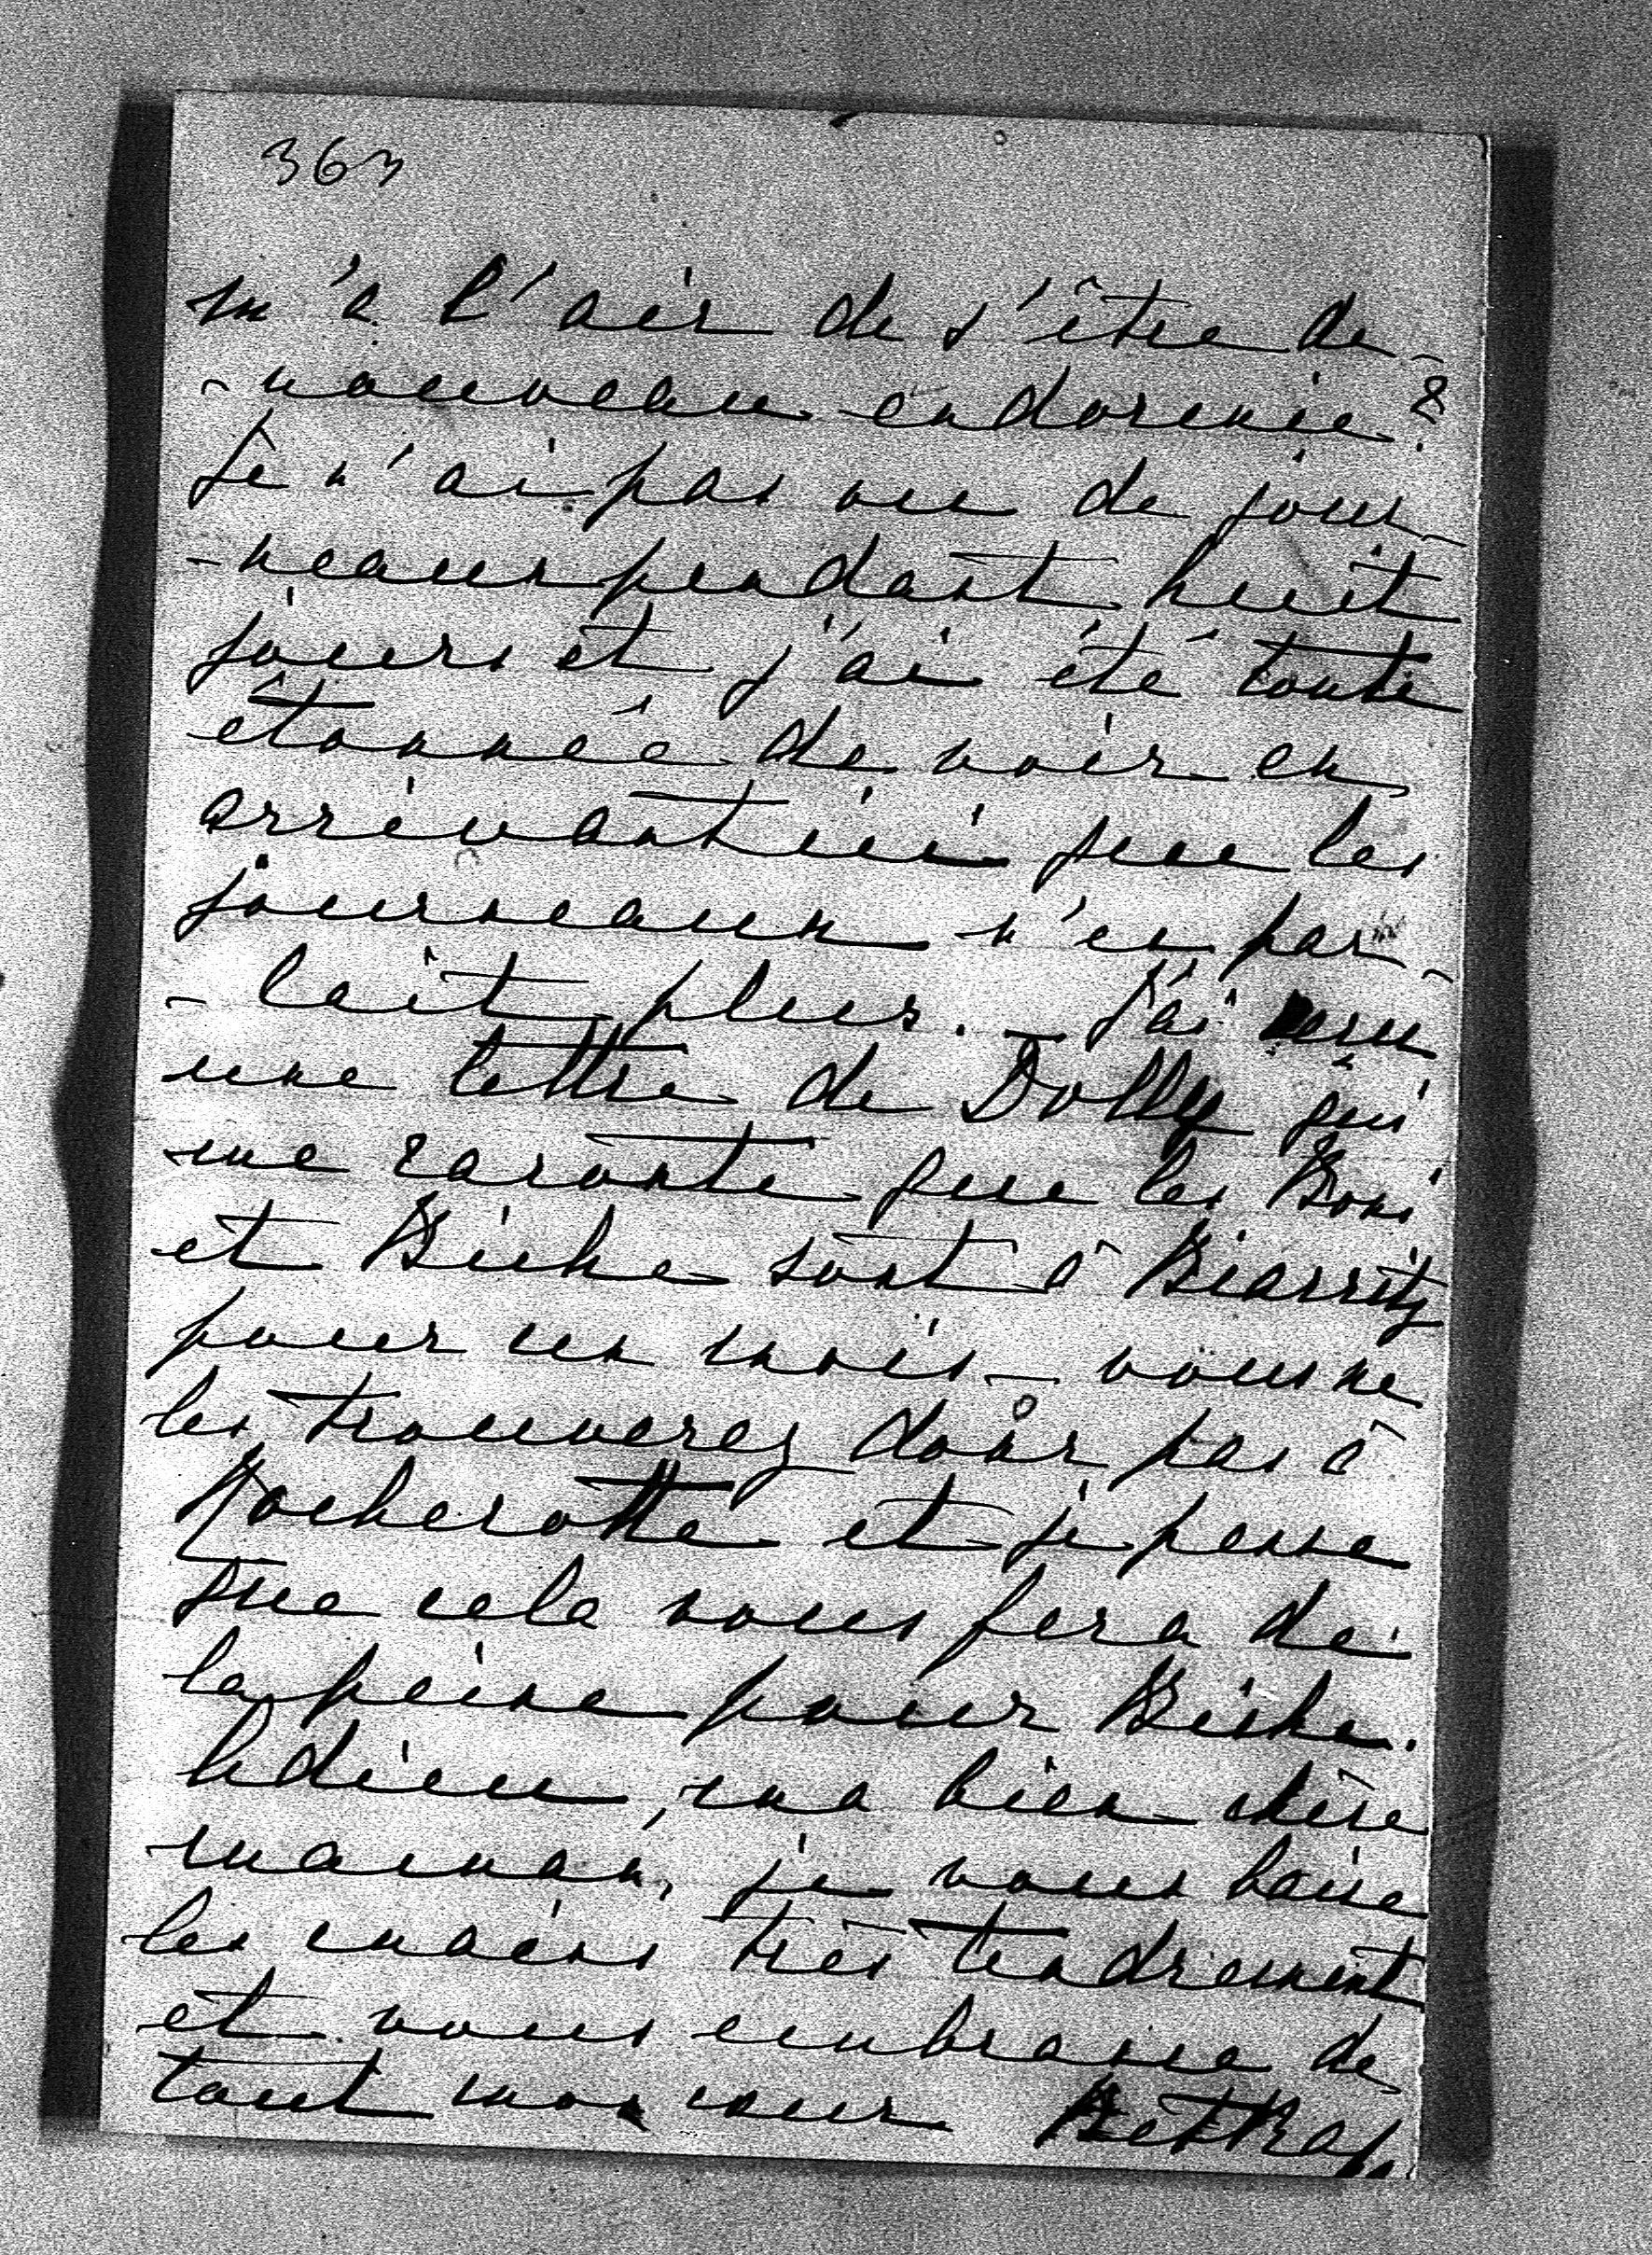 363
m'a l'air de s'être de-
-nouveau endormie?
Je n'ai pas vu de jour-
-neaux pendant huit
jours et j'ai été toute
étonnée de voir en
arrivant ici que les
journeaux n'en par-
-lait plus. — J'ai reçu
une lettre de Dolly qui
me raconte que les Boni
et Biche sont à Biarritz
pour un mois — vous ne
les trouverez donc pas à
Rocherotte et je pense
que cela vous fera de
la peine pour Biche.
Adieu, ma bien chère
maman, je vous baise
les mains très tendrement
et vous embrasse de
tout mon cœur